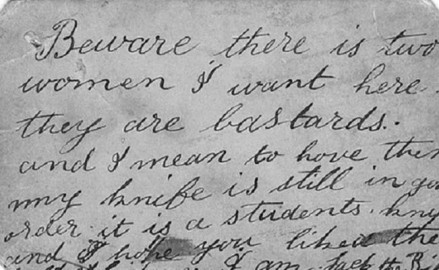 Beware there is two
women I want here
they are bastards.
and I mean to hove them
my knife is still in go
order it is a students. kni
and I hope you liked the
I am